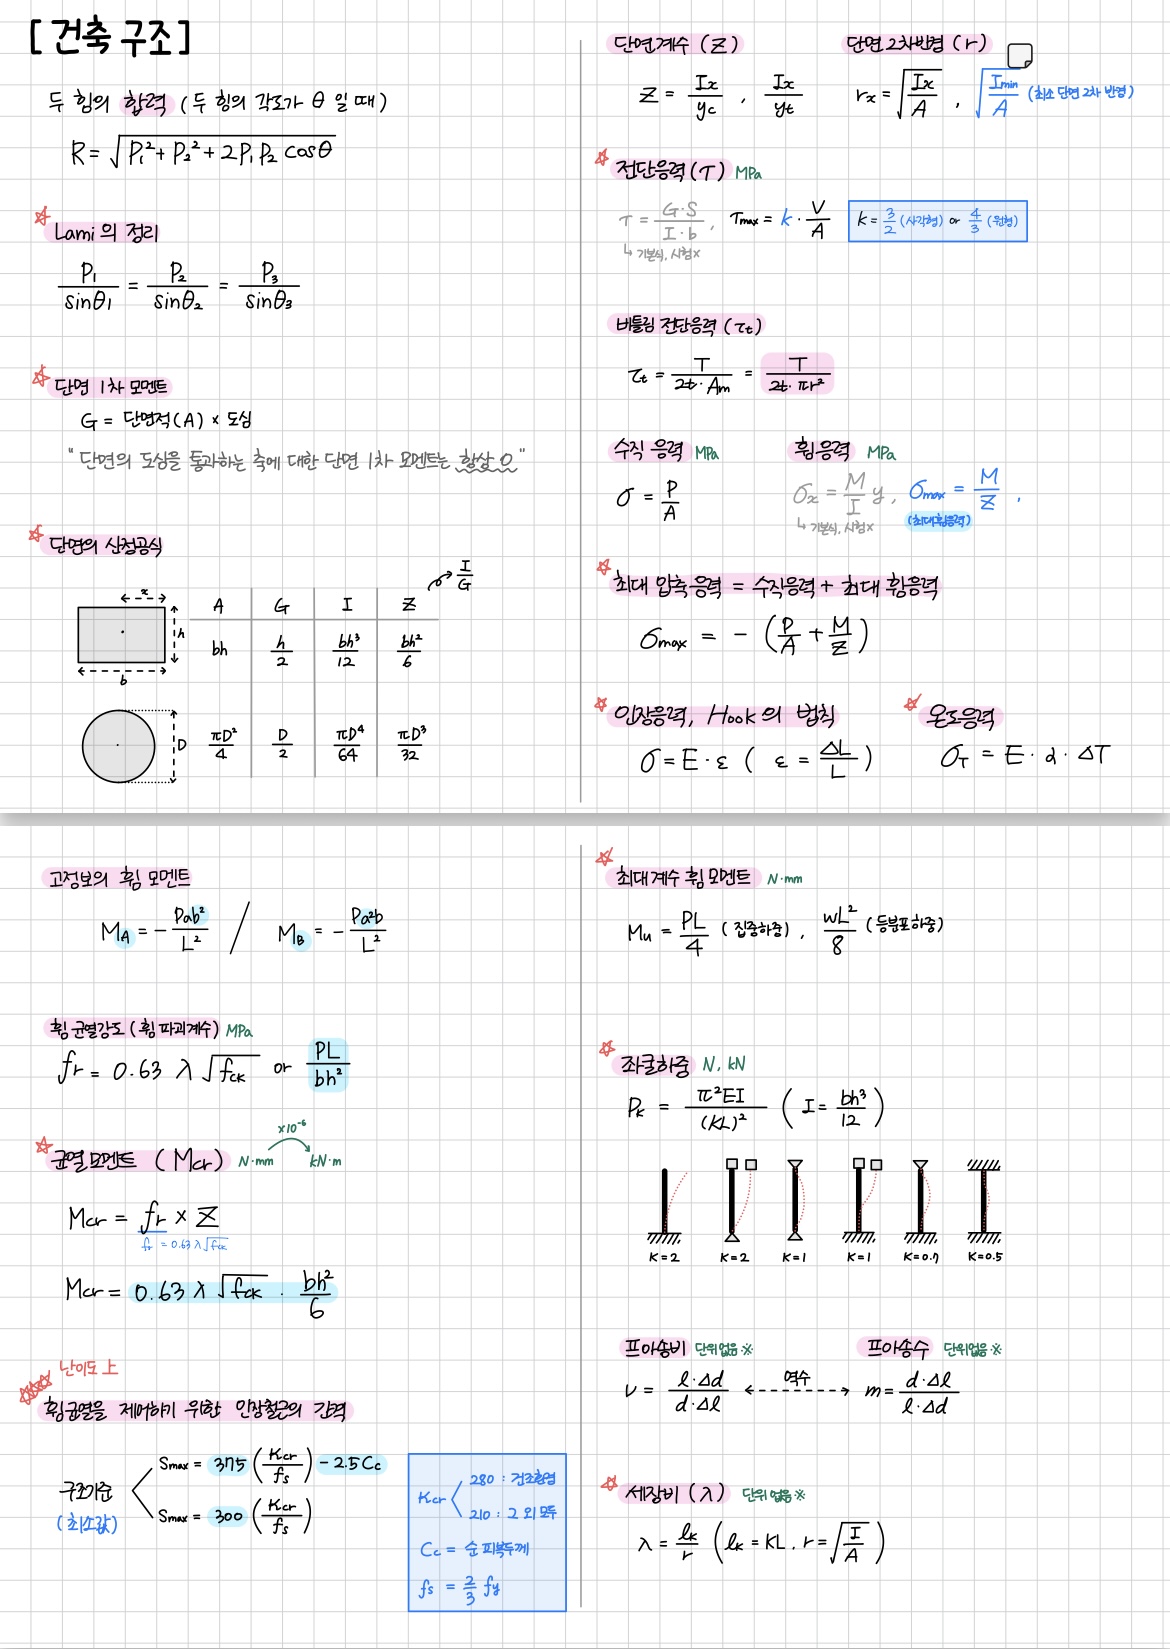 [ 건축 구조 ]
두 힘의 합력 ( 두 힘의 각도가 θ 일 때 )
R = √(P₁² + P₂² + 2P₁P₂ cosθ)
☆ Lami 의 정리
P₁/sinθ₁ = P₂/sinθ₂ = P₃/sinθ₃
☆ 단면 1차 모멘트
G = 단면적(A) × 도심
" 단면의 도심을 통과하는 축에 대한 단면 1차 모멘트는 항상 0 "
☆ 단면의 산정공식
I/G
x
h
b
A G I Z
bh h/2 bh³/12 bh²/6
D
πD²/4 D/2 πD⁴/64 πD³/32
단면계수 (Z)
Z = Ix/yc , Ix/yt
단면 2차반경 (r)
rx = √(Ix/A) , √(Imin/A) (최소 단면 2차 반경)
☆ 전단응력 (τ) MPa
τ = G·S/I·b , τmax = k · V/A
k = 3/2 (사각형) or 4/3 (원형)
↳ 기본식, 시험x
비틀림 전단응력 (τt)
τt = T/2t·Am = T/2t·πr²
수직 응력 MPa
σ = P/A
휨응력 MPa
σx = M/I y , σmax = M/Z ,
↳ 기본식, 시험x (최대휨응력)
☆ 최대 압축응력 = 수직응력 + 최대 휨응력
σmax = - (P/A + M/Z)
☆ 인장응력, Hook 의 법칙
σ = E · ε ( ε = ΔL/L )
☆ 온도응력
σT = E · α · ΔT
고정보의 휨 모멘트
MA = - Pab²/L² / MB = - Pa²b/L²
휨 균열강도 ( 휨 파괴계수) MPa
fr = 0.63 λ √fck or PL/bh²
☆ 균열모멘트 ( Mcr) N·mm kN·m
×10⁻⁶
Mcr = fr × Z
fr = 0.63 λ √fck
Mcr = 0.63 λ √fck · bh²/6
난이도 上
☆☆☆ 휨균열을 제어하기 위한 인장철근의 간격
구조기준
(최소값)
Smax = 375 (Kcr/fs) - 2.5Cc
Smax = 300 (Kcr/fs)
Kcr
280 : 건조환경
210 : 그 외 모두
Cc = 순 피복두께
fs = 2/3 fy
☆ 최대계수 휨모멘트 N·mm
Mu = PL/4 ( 집중하중) , wL²/8 ( 등분포하중)
☆ 좌굴하중 N, kN
Pk = π²EI/(KL)² ( I = bh³/12 )
K=2 K=2 K=1 K=1 K=0.7 K=0.5
프아송비 단위없음※
ν = l·Δd/d·Δl
역수
프아송수 단위없음※
m = d·Δl/l·Δd
☆ 세장비 (λ) 단위 없음※
λ = lk/r ( lk = KL , r = √(I/A) )